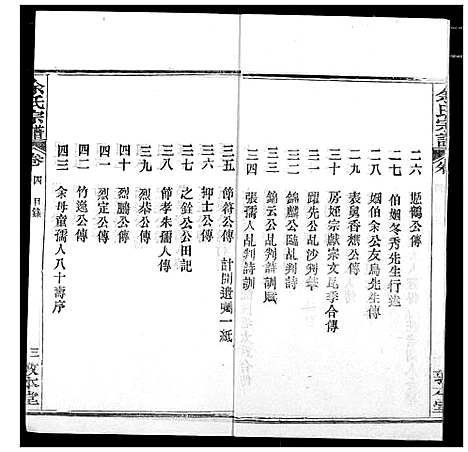 余氏宗譜
二六 懸鶴公傳
二七 伯姻冬秀先生行述
二八 姻伯余公友鳥先生傳
二九 表舅香樵公傳
三十 房姪宗獻宗文昆季合傳
三一 躍先公乩沙判華
三二 錦麟公臨乩判詩
三三 錦云公乩判詩訓賦
三四 張孺人乩判詩訓
三五 節符公傳 計開遺囑一紙
三六 抑士公傳
三七 之銓公公田記
三八 節孝朱孺人傳
三九 烈棻公傳
四十 烈鵬公傳
四一 烈定公傳
四二 竹逸公傳
四三 余母童孺人八十壽序
余氏宗譜 卷四 目錄 三 敦本堂